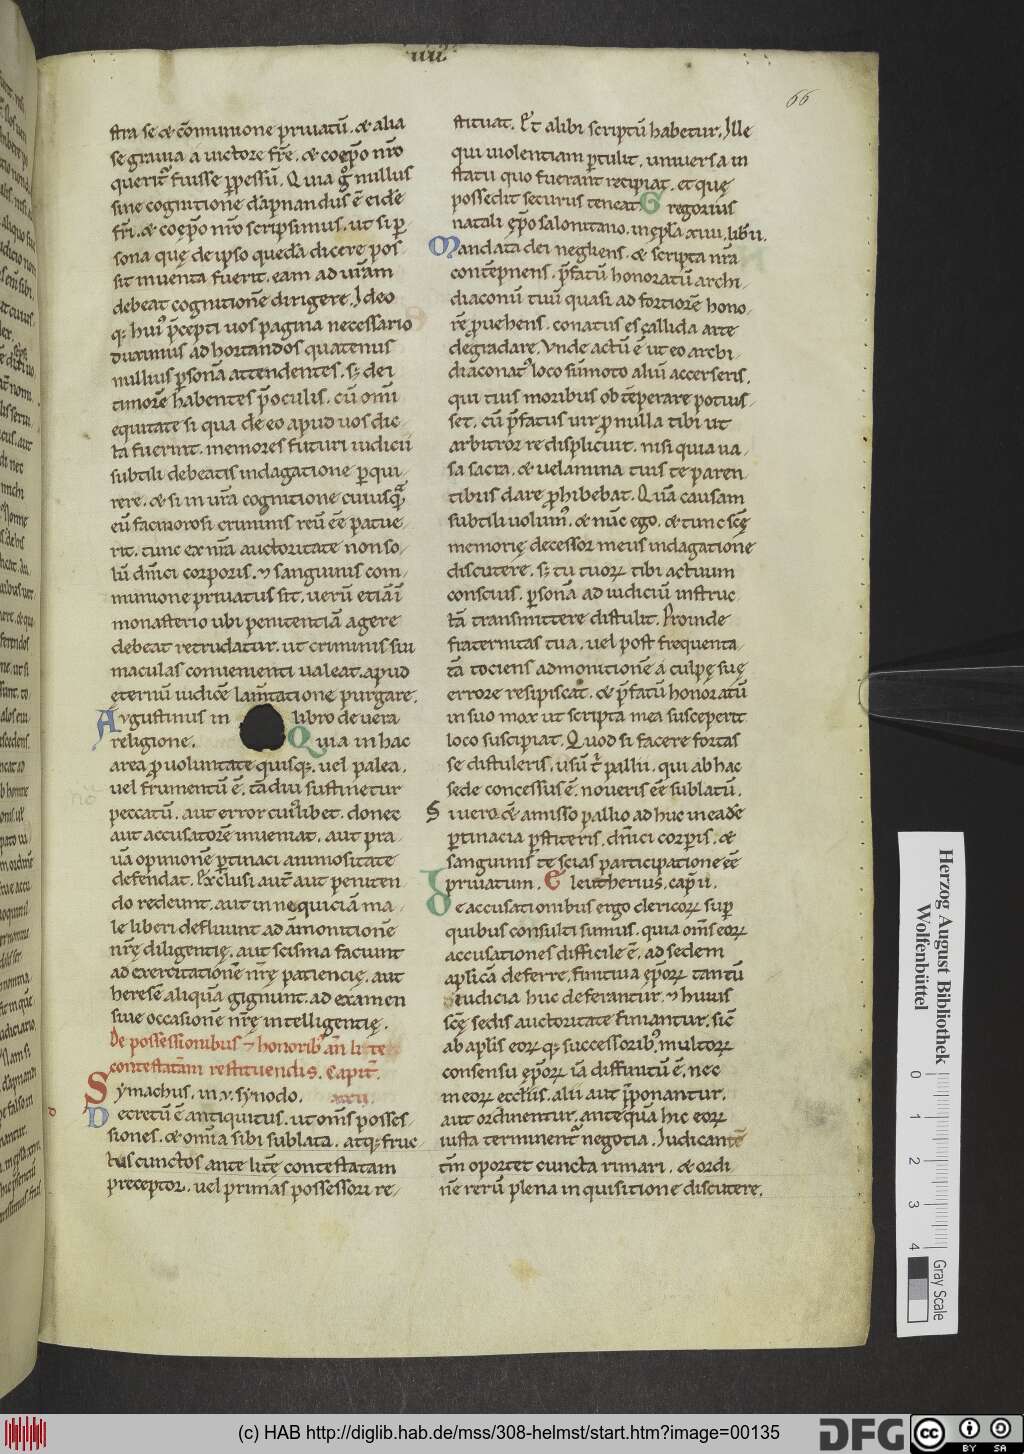 .iiii.
66
stra se & cōmunione priuatū. & alia
se grauia a uictore fr̄e. & coep̄o nr̄o
querit᷑ fuisse p̱pessū. Quia gͦ nullus
sine cognitione dāpnandus ē eidē
fr̄i. & coep̄o nr̄o scripsimus. ut si p̱
sona que de ipso quedā dicere pos
sit inuenta fuerit. eam ad uram̄
debeat cognitionē dirigere. Ideo
q; hui᾽ p̄cepti uos pagina necessario
duximus ad hortandos quatenus
nullius p̱sonā attendentes. s; dei
timorē habentes p̄ oculis. cū omī
equitate si qua de eo apud uos dic
ta fuerint. memores futuri iudicii
subtili debeatis indagatione p̱qui
rere. & si in ur̄a cognitione cuiusq̄
eū facinorosi criminis reū eē patue
rit. tunc ex nr̄a auctoritate non so
lū dn̄ici corporis. ⁊ sanguinis com
munione priuatus sit. uerū etiā ī
monasterio ubi penitentiā agere
debeat retrudatur. ut criminis sui
maculas conuenienti ualeat apud
eternū iudicē lam̄tatione purgare.
Avgustinus in libro de uera
religione. Quia in hac
area p̱ uoluntate quisq;. uel palea.
uel frumentū ē. tādiu sustinetur
peccatū. aut error cui᾽libet. donec
aut accusatorē inueniat. aut pra
uā opinionē p̱tinaci animositate
defendat. Exclusi aut̄ aut peniten
do redeunt. aut in nequiciā ma
le liberi defluunt ad āmonitionē
nr̄ę diligentię. aut scisma faciunt
ad exercitationē nr̄ę patiencię. aut
heresē aliquā gignunt. ad examen
siue occasionē nr̄ę intelligentię.
De possessionibus ⁊ honorib; an̄ lite
contestatam restituendis. Capit̄.
Symachus. in .v. synodo. xxii.
Decretū ē antiquitus. ut om̄s posses
siones. & om̄ia sibi sublata. atq; fruc
tus cunctos ante litē contestatam
preceptor. uel primas possessori re
stituat. Et alibi scriptū habetur. Ille
qui uiolentiam p̱tulit. uniuersa in
statu quo fuerant recipiat. et quę
possedit securus teneat. Gregorius
natali ep̄o salonitano. in ep̄la xiiii. lib. ii.
Mandata dei negliens. & scripta nr̄a
contēpnens. p̄fatū honoratū archi
diaconū tuū quasi ad fortiorē hono
rē prouehens. conatus es callida arte
degradare. Vnde actū ē ut eo archi
diaconat᾽ loco sūmoto aliū accerseris.
qui tuis moribus obtēperare potuis
set. cū p̄fatus uir pro nulla tibi ut
arbitror re displicuit. nisi quia ua
sa sacra. & uelamina tuis te paren
tibus dare prohibebat. Quā causam
subtili uolum᾽. & nūc ego. & tunc scę
memorię decessor meus indagatione
discutere. s; tu tuoꝝ tibi actuum
conscius. p̱sonā ad iudiciū instruc
tā transmittere distulit. Proinde
fraternitas tua. uel post frequenta
tā tociens admonitionē a culpę suę
errore resipiscat. & p̄fatū honoratū
in suo mox ut scripta mea susceperit
loco suscipiat. Quod si facere fortas
se distuleris. usū t᷑ pallii. qui ab hac
sede concessus ē. noueris eē sublatū.
Si uero cē amisso pallio ad huc in eadē
p̱tinacia p̱stiteris. dn̄ici corp̱is. &
sanguinis te scias participatione eē
priuatum. Eleutherius. cap. ii.
De accusationibus ergo clericoꝝ sup̱
quibus consulti sumus. quia om̄s eoꝝ
accusationes difficile ē. ad sedem
ap̄licā deferre. finitiua ep̄oꝝ tantū
iudicia huc deferantur. ⁊ huius
scę sedis auctoritate finiantur. sic̄
ab ap̄lis eoꝝ q; successorib; multoꝝ
consensu ep̄oꝝ iā diffinitū ē. nec
in eoꝝ eccliis. alii aut p̄ponantur.
aut ordinentur. ante quā hic eoꝝ
iusta terminent᷑ negotia. Iudicantē
tm̄ oportet cuncta rimari. & ordi
nē rerū plena inquisitione discutere.
Herzog August Bibliothek
Wolfenbüttel
0 1 2 3 4
Gray Scale
(c) HAB http://diglib.hab.de/mss/308-helmst/start.htm?image=00135
DFG
cc BY SA